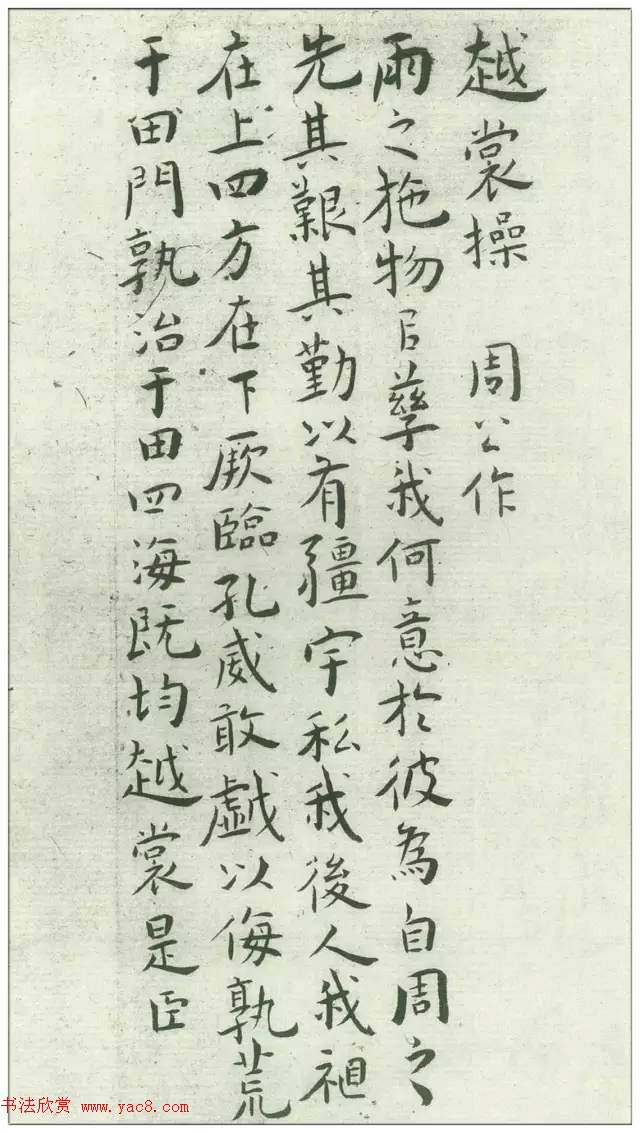 越裳操 周公作
雨之施物㠯孳我何意於彼為自周之
先其艱其勤以有疆宇私我後人我祖
在上四方在下厥臨孔威敢戲以侮孰荒
于田門孰治于田四海既均越裳是臣
书法欣赏 www.yac8.com